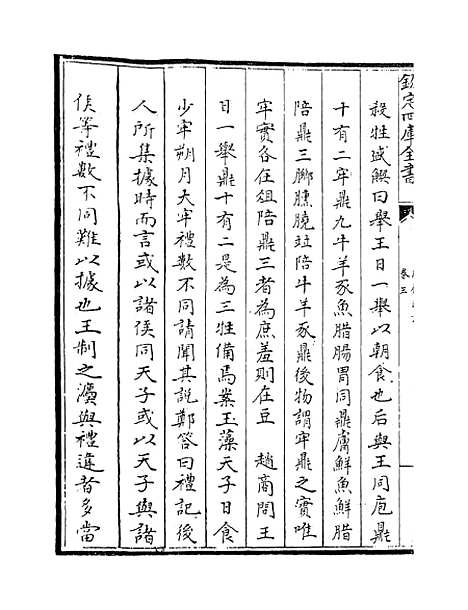 欽定四庫全書
卷三
殺牲盛饌曰舉王日一舉以朝食也后與王同庖鼎
十有二牢鼎九牛羊豕魚腊腸胃同鼎膚鮮魚鮮腊
陪鼎三膷臐膮竝陪牛羊豕鼎後物謂牢鼎之實唯
牢實各在俎陪鼎三者為庶羞則在豆　趙商問王
日一舉鼎十有二是為三牲備焉案玉藻天子日食
少牢朔月大牢禮數不同請聞其說鄭答曰禮記後
人所集據時而言或以諸侯同天子或以天子與諸
侯等禮數不同難以據也王制之灋與禮違者多當